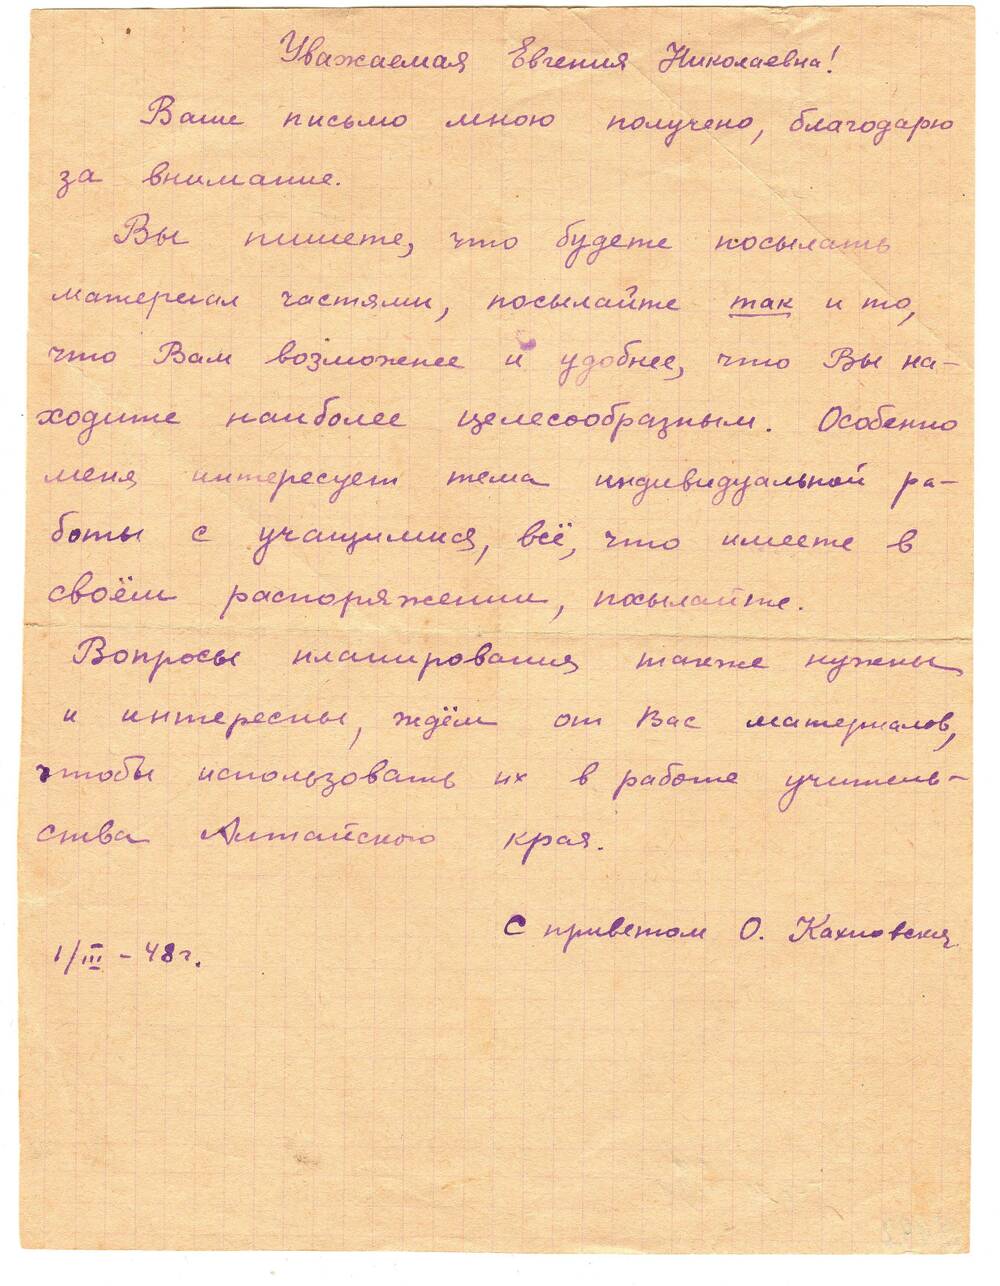 Уважаемая Евгения Николаевна!
Ваше письмо мною получено, благодарю
за внимание.
Вы пишете, что будете посылать
материал частями, посылайте так и то,
что Вам возможнее и удобнее, что Вы на-
ходите наиболее целесообразным. Особенно
меня интересует тема индивидуальной ра-
боты с учащимися, всё, что имеете в
своём распоряжении, посылайте.
Вопросы планирования также нужны
и интересны, ждём от Вас материалов,
чтобы использовать их в работе учитель-
ства Алтайского края.
С приветом О. Кахновская
1/III - 48 г.